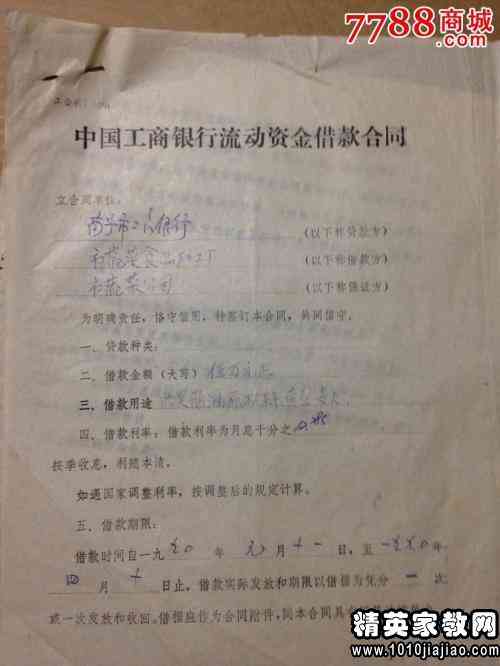 7788商城
.com
中国工商银行流动资金借款合同
立合同单位：
（以下称贷款方）
市蔬菜食品加工厂（以下称借款方）
市蔬菜公司（以下称保证方）
为明确责任，恪守信用，特签订本合同，共同信守。
一、贷款种类：
二、借款金额（大写）
三、借款用途
四、借款利率：借款利率为月息十分之
按季收息，利随本清。
如遇国家调整利率，按调整后的规定计算。
五、借款期限：
借款时间自一九九〇年 月十一日，至一九九〇年
四月十日止，借款实际发放和期限以借据为凭分一次
或一次发放和收回。借据应作为合同附件，同本合同具有
精英家教网
www.1010jiajiao.com